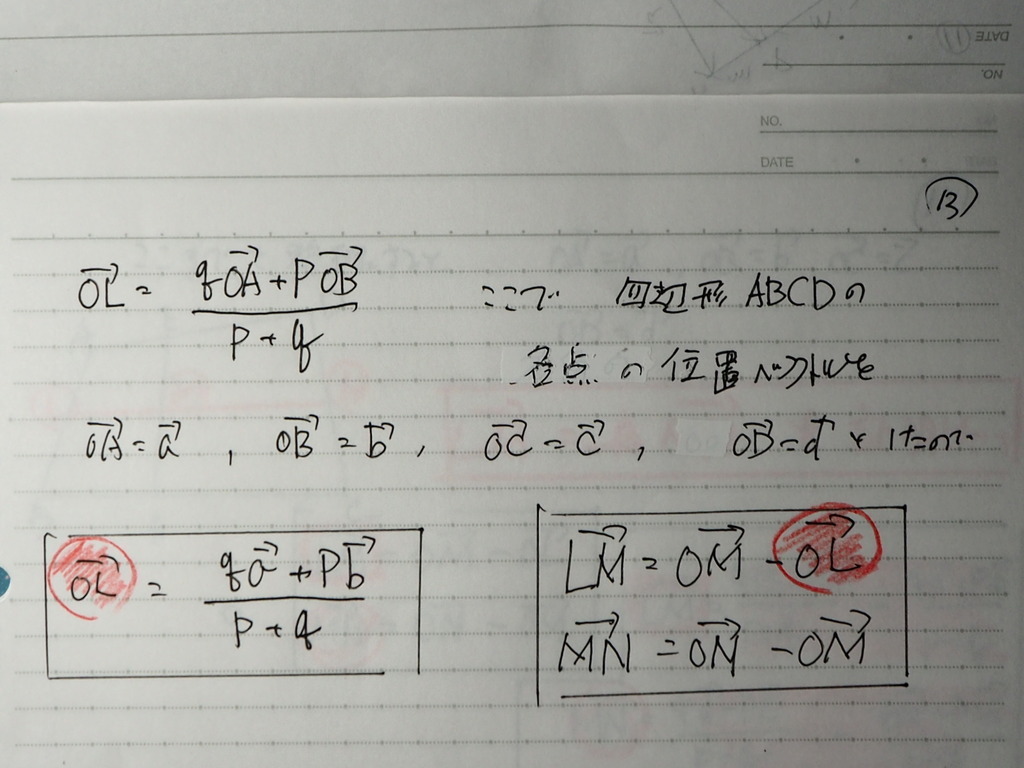 NO.
DATE
NO.
DATE
⑬
OL→ = (qOA→ + pOB→) / (p + q) ここで 四辺形 ABCD の
各点の位置ベクトルを
OA→ = a→ , OB→ = b→ , OC→ = c→ , OB→ = d→ としたので
OL→ = (qa→ + pb→) / (p + q)
LM→ = OM→ - OL→
MN→ = ON→ - OM→